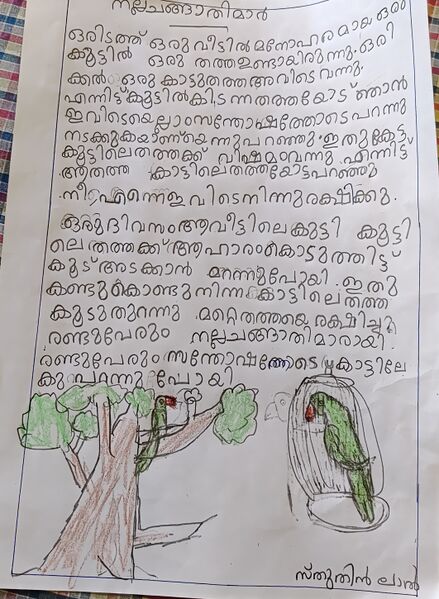 നല്ലചങ്ങാതിമാർ
ഒരിടത്ത് ഒരു വീട്ടിൽ മനോഹരമായ ഒരു
കൂട്ടിൽ ഒരു തത്ത ഉണ്ടായിരുന്നു. ഒരി
ക്കൽ ഒരു കാട്ടുതത്ത അവിടെ വന്നു.
എന്നിട്ട് കൂട്ടിൽ കിടന്ന തത്തയോട് ഞാൻ
ഇവിടെയെല്ലാം സന്തോഷത്തോടെ പറന്നു
നടക്കുകയാണ് യെന്നു പറഞ്ഞു. ഇതു കേട്ട
കൂട്ടിലെ തത്തക്ക് വിഷമാവന്നു. എന്നിട്ട്
ആ തത്ത കാട്ടിലെ തത്തയോട് പറഞ്ഞു
നീ എന്നെ ഇവിടെ നിന്നു രക്ഷിക്കു.
ഒരു ദിവസം ആ വീട്ടിലെ കുട്ടി കൂട്ടി
ലെ തത്തക്ക് ആഹാരം കൊടുത്തിട്ട്
കൂട് അടക്കാൻ മറന്നുപോയി. ഇതു
കണ്ടുകൊണ്ടു നിന്ന കാട്ടിലെ തത്ത
കൂടു തുറന്നു മറ്റെ തത്തയെ രക്ഷിച്ചു
രണ്ടുപേരും നല്ല ചങ്ങാതിമാരായി.
രണ്ടുപേരും സന്തോഷത്തോടെ കാട്ടിലേ
കു പറന്നു പോയി
സ്തുതിൻ ലാൽ